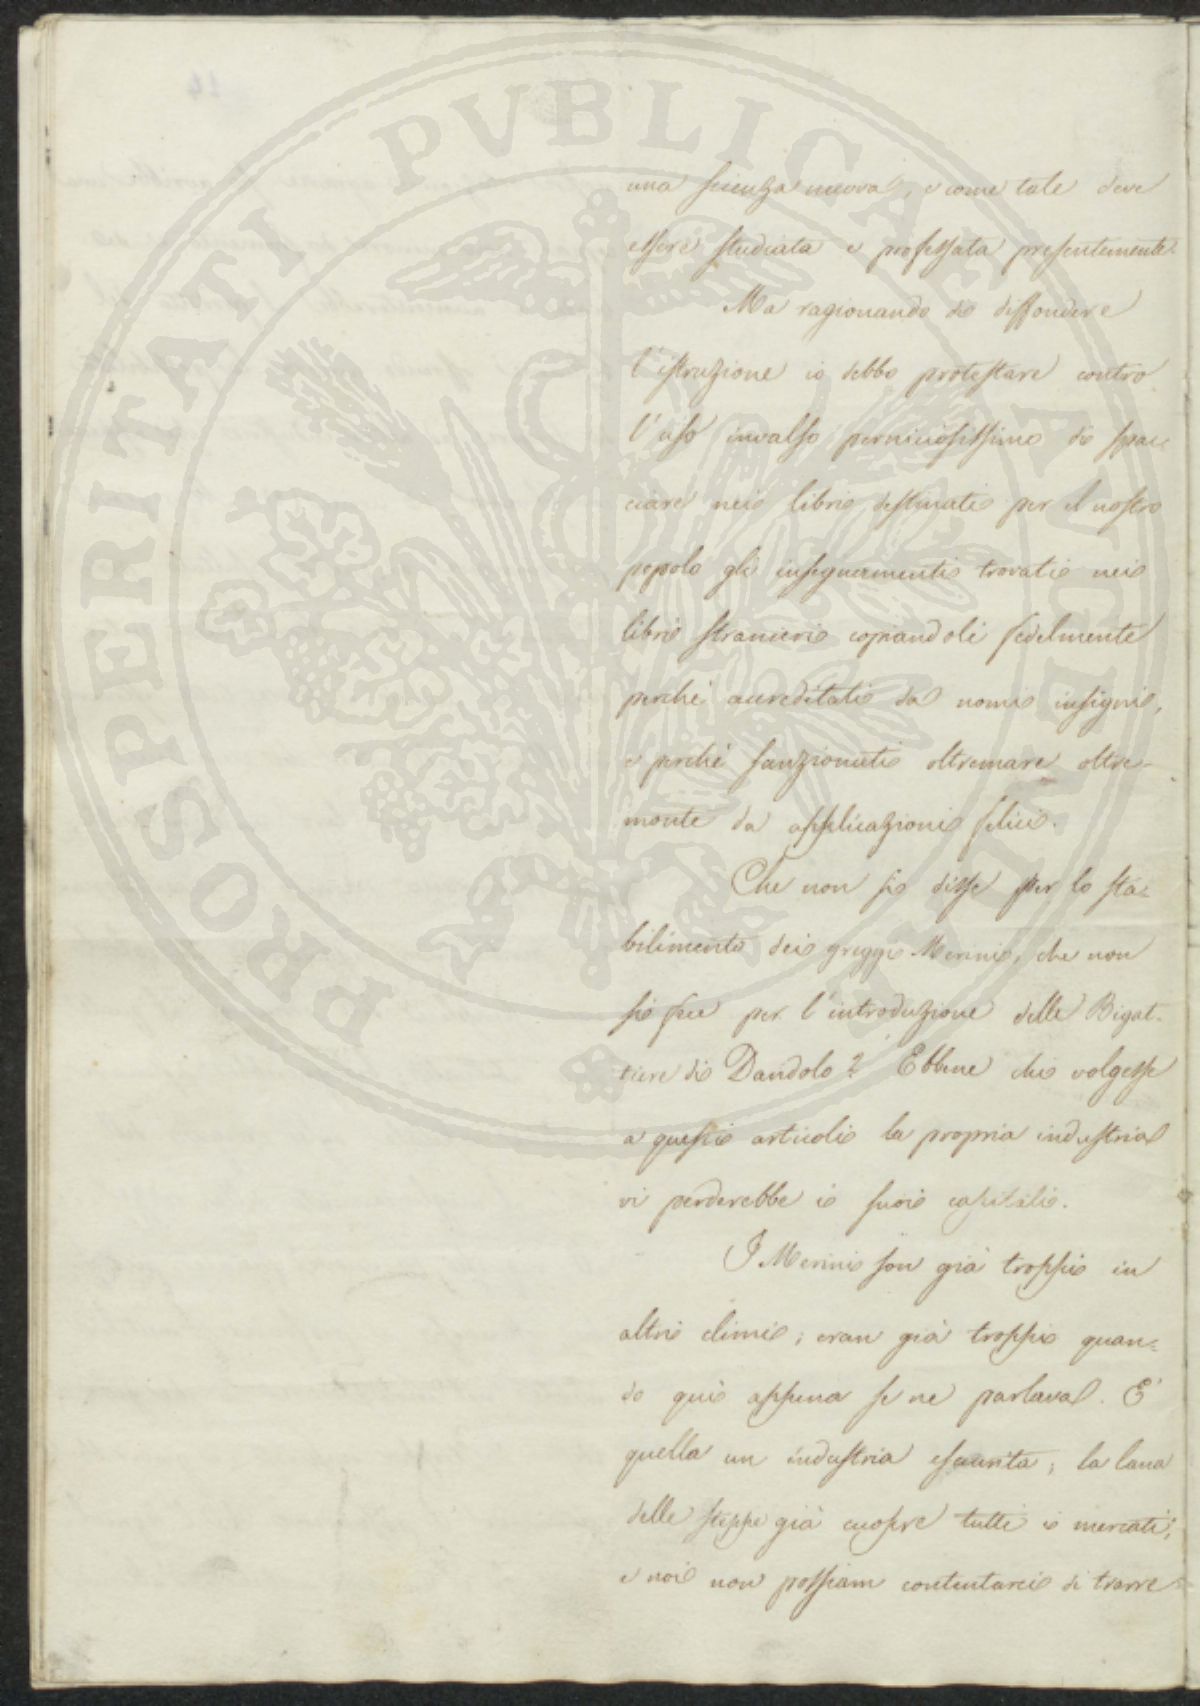 PROSPERITATI PUBLICAE AUGENDAE
una scienza nuova, e come tale deve
essere studiata e professata presentemente.
Ma ragionando di diffondere
l'istruzione io debbo protestare contro
l'uso invalso perniciosissimo di spac-
ciare nei libri destinati per il nostro
popolo gli insegnamenti trovati nei
libri stranieri copiandoli fedelmente
perché accreditati da nomi insigni,
e perché sanzionati oltremare oltre-
monte da applicazioni felici.
Che non si disse per lo sta-
bilimento dei greggi Merini, che non
si fece per l'introduzione delle Bigat-
tiere di Dandolo? Ebbene chi volgesse
a questi articoli la propria industria
vi perderebbe i suoi capitali.
I Merini son già troppi in
altri climi; eran già troppi quan-
do qui appena se ne parlava. È
quella un industria esaurita; la lana
delle steppe già cuopre tutti i mercati;
e noi non possiam contentarci di trarre